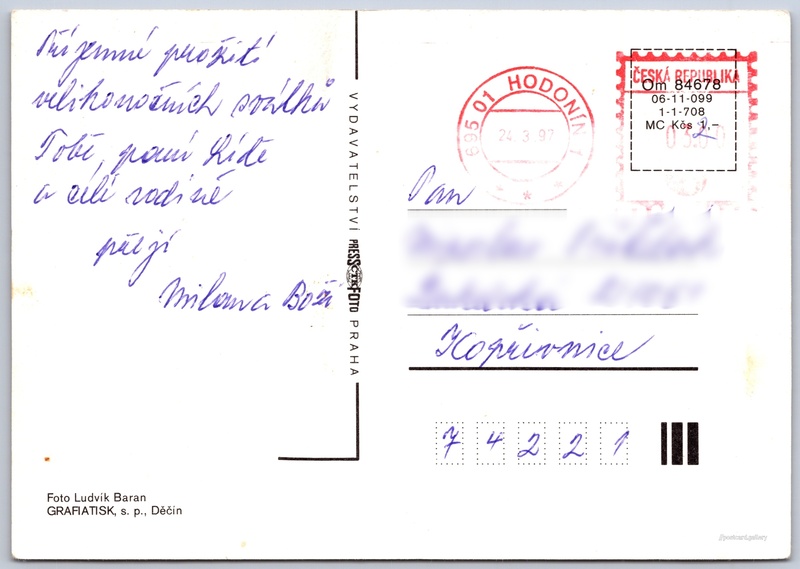 Příjemné prožití
velikonočních svátků
Tobě, paní Lídě
a celé rodině
přejí
Milena Boží
VYDAVATELSTVÍ PRESSFOTO PRAHA
ČTK
695 01 HODONÍN 1
24.3.97
ČESKÁ REPUBLIKA
Om 84678
06-11-099
1-1-708
MC Kčs 1,–
2
Pan
Kopřivnice
74221
Foto Ludvík Baran
GRAFIATISK, s. p., Děčín